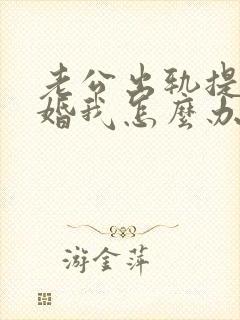 老公出轨提
婚我怎麼办
游金萍